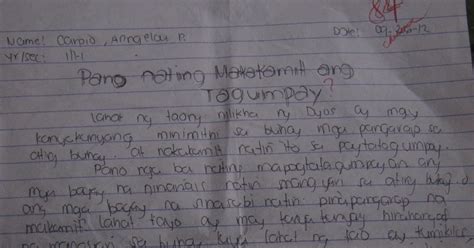 84
Name: Carpio, Anngelou P. Date:
Yr/sec: III-1
Pano nating Makatamit ang
Tagumpay?
Lahat ng taong nilikha ng Dyos ay may
kanyakanyang minimithi sa buhay mga pangarap sa
ating buhay. at nakakamit natin ito sa pagtatagumpay.
Pano nga ba nating mapagtatagumpayan ang
mga bagay na ninanais natin mangyari sa ating buhay o
ang mga bagay na sinasabi natin pinapangarap ng
makamit lahat tayo ay may
sa buhay kaya lahat ng tao ay